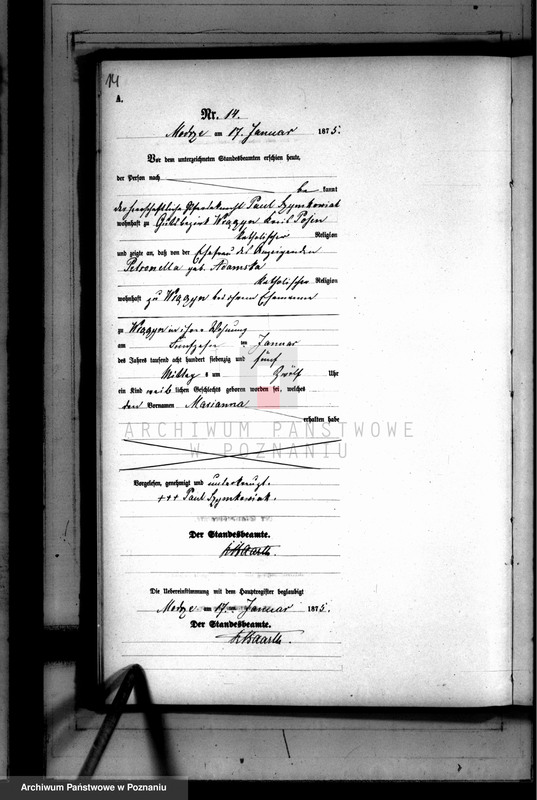 14
A.
Nr. 14.
Modrze am 17. Januar 1875.
Vor dem unterzeichneten Standesbeamten erschien heute,
der Person nach
be kannt
der herrschaftliche Pferdeknecht Paul Szymkowiak
wohnhaft zu Gutsbezirk Kreis Posen
katholischer Religion
und zeigte an, daß von der Ehefrau des Anzeigenden
Petronella geb. Adamska
katholischer Religion
wohnhaft zu bei ihrem Ehemanne
zu in ihrer Wohnung
am Fünfzehn ten Januar
des Jahres tausend acht hundert siebenzig und fünf
Mittag s um Zwölf Uhr
ein Kind weib lichen Geschlechts geboren worden sei, welches
den Vornamen Marianna
erhalten habe
ARCHIWUM PAŃSTWOWE
W POZNANIU
Vorgelesen, genehmigt und unterkreuzt.
+++ Paul Szymkowiak.
Der Standesbeamte.
Die Uebereinstimmung mit dem Hauptregister beglaubigt
Modrze am 17. Januar 1875.
Der Standesbeamte.
Archiwum Państwowe w Poznaniu